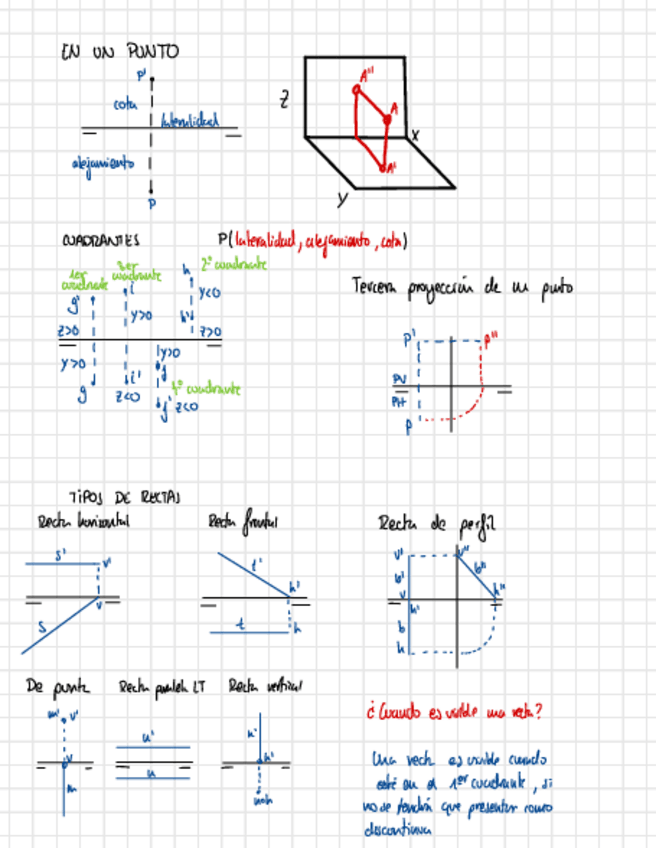 EN UN PUNTO
P'
cota
lateralidad
alejamiento
P
A''
Z
A
X
A'
Y
CUADRANTES
P(lateralidad, alejamiento, cota)
1er cuadrante
3er cuadrante
2º cuadrante
g'
i
h
y>0
y<0
h'
z>0
z>0
y>0
y>0
g
i'
z<0
j
4º cuadrante
j' z<0
Tercera proyección de un punto
P'
P''
PV
PH
P
TIPOS DE RECTAS
Recta horizontal
Recta frontal
Recta de perfil
s'
v'
v
s
t'
h'
t
h
v'
v''
b'
b''
v
h'
h''
b
h
De punta
Recta paralela LT
Recta vertical
m'
v'
v
m
u'
u
h'
¿Cuando es visible una recta?
Una recta es visible cuando
esté en el 1er cuadrante, si
no se tendrá que presentar como
discontinua